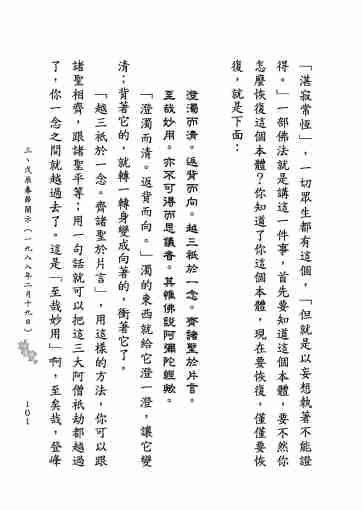 「湛寂常恆」，一切眾生都有這個，「但就是以妄想執著不能證
得。」一部佛法就是講這一件事，首先要知道這個本體，要不然你
怎麼恢復這個本體？你知道了你這個本體，現在要恢復，僅僅要恢
復，就是下面：
澄濁而清。返背而向。越三祇於一念。齊諸聖於片言。
至哉妙用。亦不可得而思議者。其惟佛說阿彌陀經歟。
「澄濁而清。返背而向。」濁的東西就給它澄一澄，讓它變
清；背著它的，就轉一轉身變成向著的，衝著它了。
「越三祇於一念。齊諸聖於片言」，用這樣的方法，你可以跟
諸聖相齊，跟諸聖平等；用一句話就可以把這三大阿僧祇劫都越過
了，你一念之間就越過去了。這是「至哉妙用」啊，至矣哉，登峰
三、戊辰春節開示（一九八八年二月十九日）
101